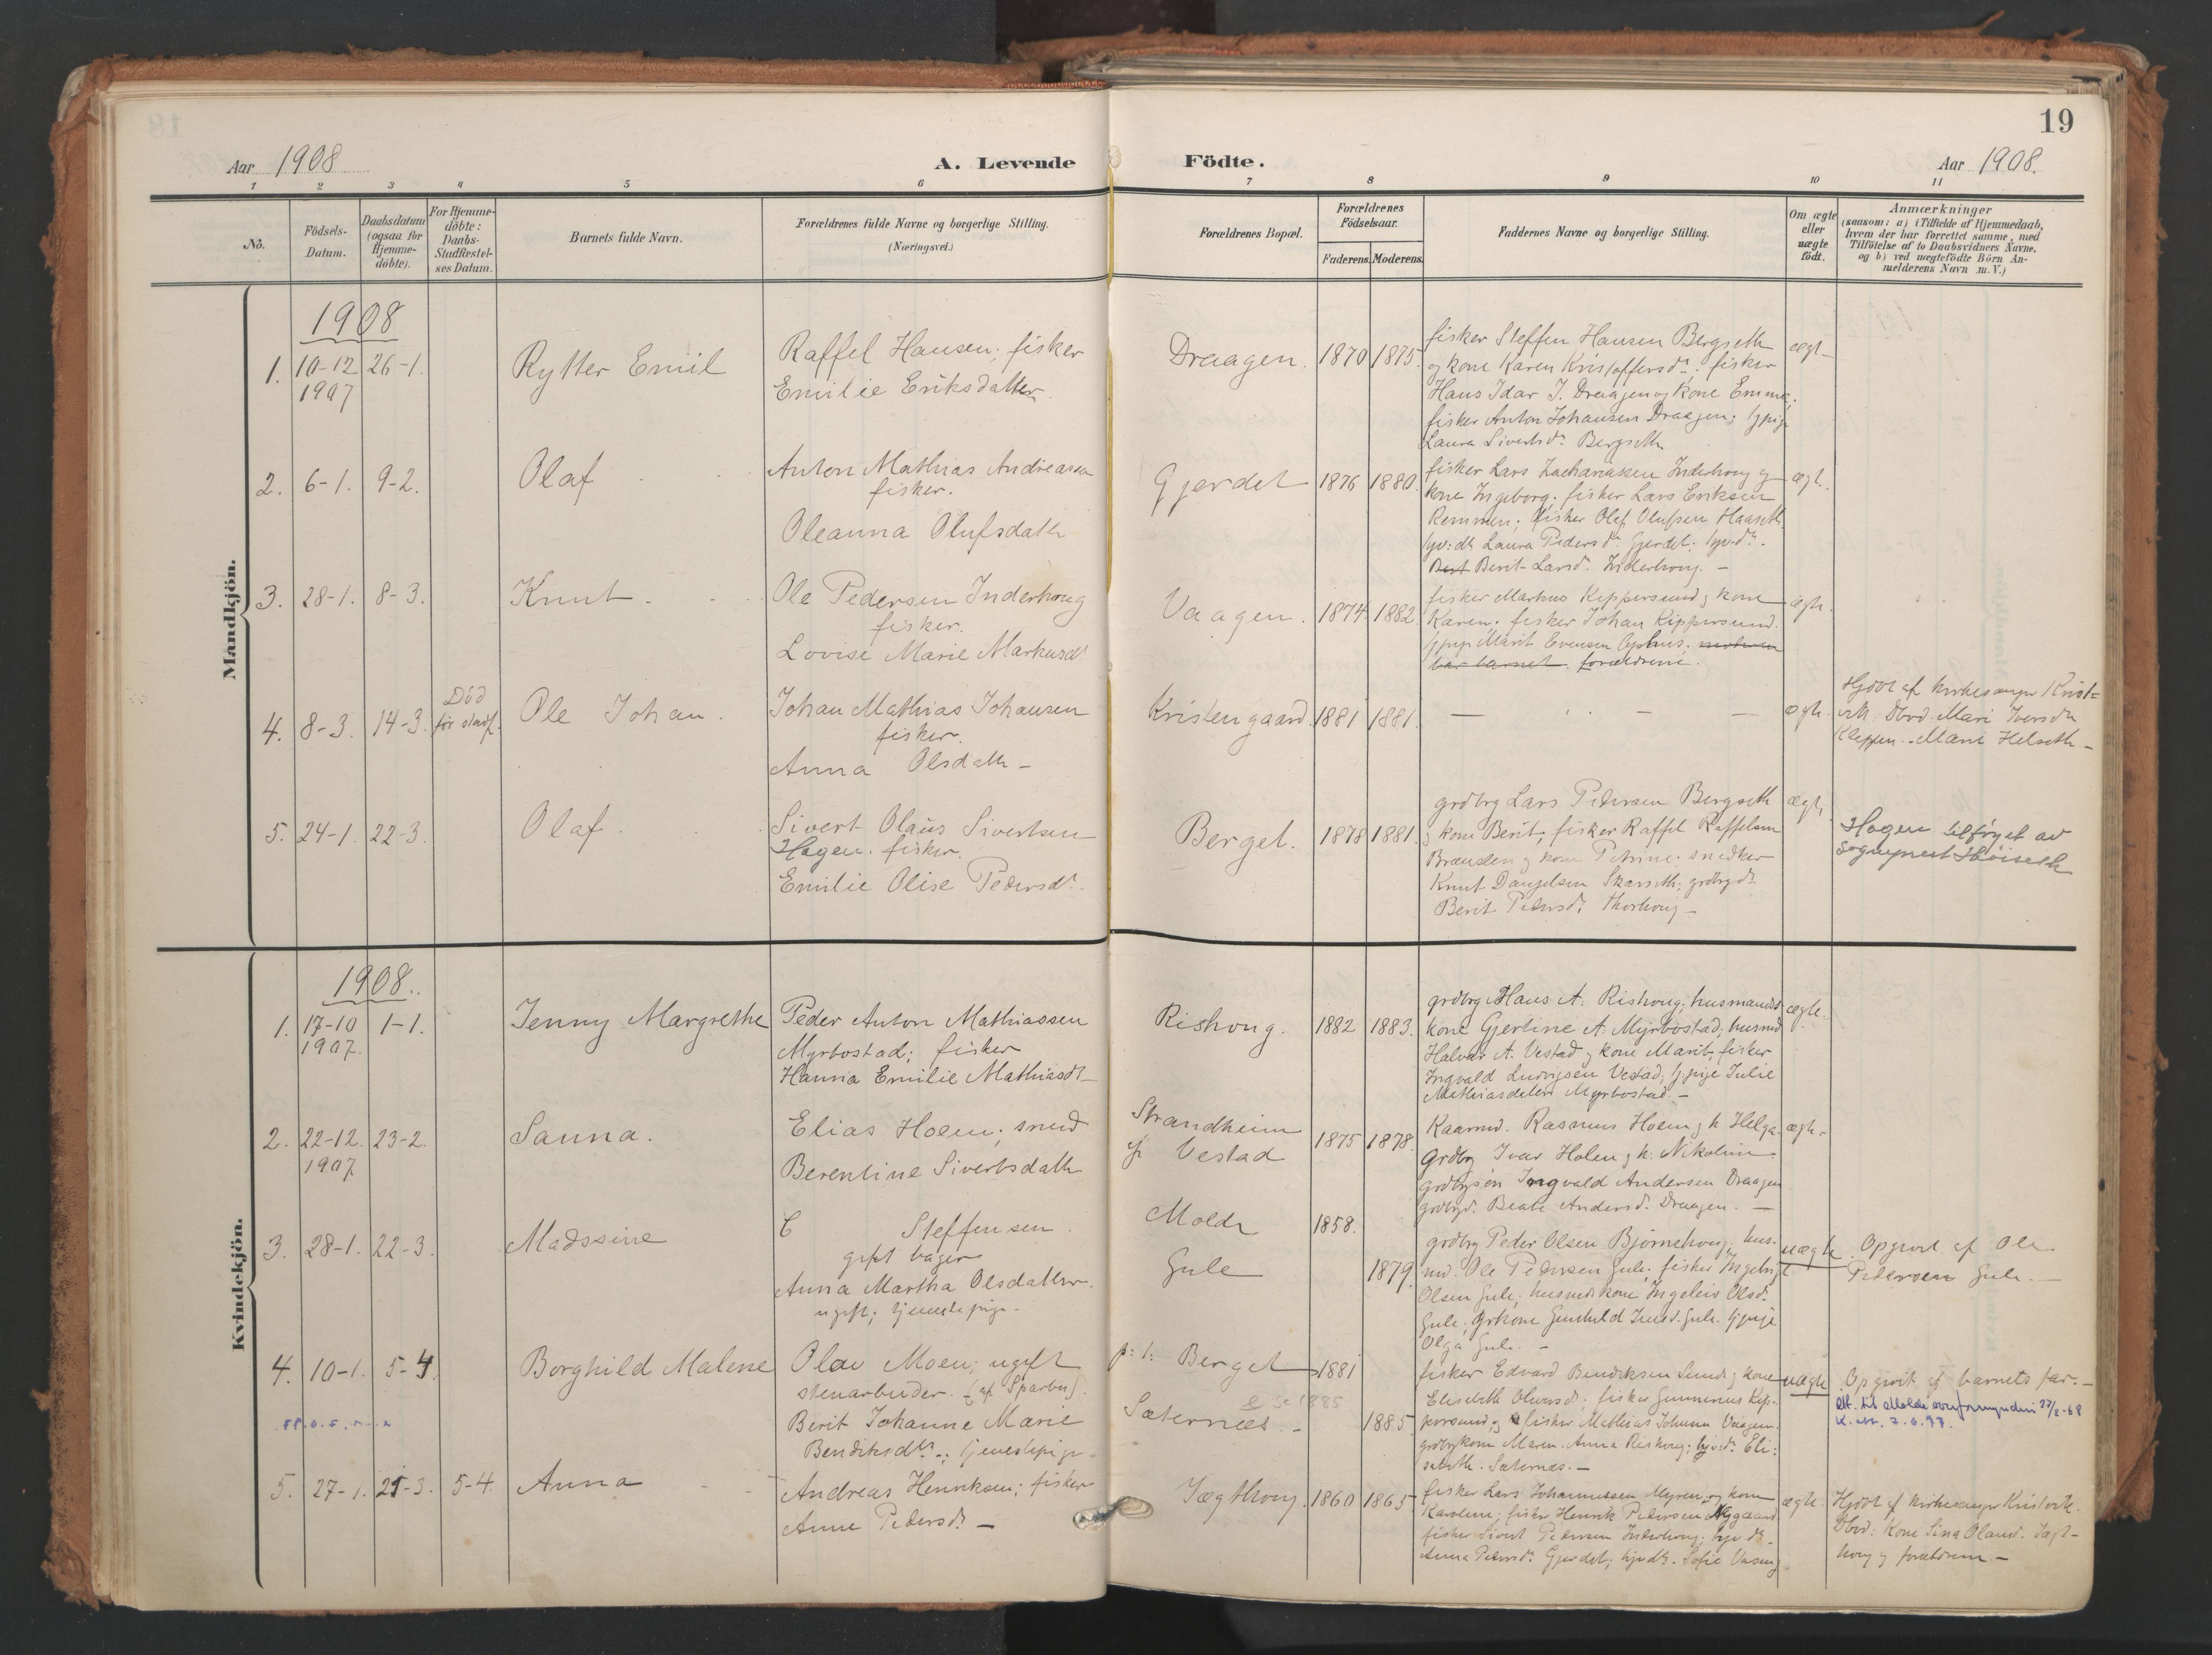 19
Aar 1908
A. Levende Födte.
Aar 1908.
1 2 3 4 5 6 7 8 9 10 11
No.
Födsels-
Datum.
Daabsdatum
(ogsaa for
Hjemme-
döbte).
For Hjemme-
döbte:
Daabs-
Stadfæstel-
ses Datum.
Barnets fulde Navn.
Forældrenes fulde Navne og borgerlige Stilling.
(Næringsvei.)
Forældrenes Bopæl.
Forældrenes
Födselsaar.
Faderens. Moderens.
Faddernes Navne og borgerlige Stilling.
Om ægte
eller
uægte
födt.
Anmærkninger
(saasom: a) i Tilfælde af Hjemmedaab,
hvem der har forrettet samme, med
Tilföielse af to Daabsvidners Navne.
og b) ved uægtefödte Börn An-
melderens Navn m. V.)
Mandkjön.
1908
1. 10-12 26-1.
1907
Rytter Emil
Raffel Hansen; fisker
Emilie Eriksdatter.
Draagen. 1870 1875.
fisker Steffen Hansen Bergseth
og kone Karen Kristoffersdr. fisker
Hans Idar J. Draagen og kone Emma;
fisker Anton Johansen Draagen; tjpige
Laura Sivertsdr Bergseth.
ægt-
2. 6-1. 9-2.
Olaf
Anton Mathias Andreassen
fisker.
Oleanna Olufsdatr
Gjerdet 1876 1880.
fisker Lars Zachariassen Inderhoug og
kone Ingeborg. fisker Lars Eriksen
Remmen; fisker Olaf Olufsen Haaseth
Laura Pedersdr Gjerdet;
Berit Larsd. Inderhoug. -
ægt.
3. 28-1. 8-3.
Knut -
Ole Pedersen Inderhoug
fisker.
Lovise Marie Markusdr
Vaagen. 1874 1882
fisker Markus Kippersund og kone
Karen; fisker Johan Kippersund.
Marit Evensen
bar barnet. forældrene.
ægte.
4. 8-3. 14-3.
Död
før stadf.
Ole Johan.
Johan Mathias Johansen
fisker.
Anna Olsdatr -
Kristengaard. 1881 1881.
ægte.
Hjdøt af kirkesanger Krist-
vik. Dbvd. Mari Iversdr
Kleppen. - Marie Helseth -
5. 24-1. 22-3.
Olaf
Sivert Olaus Sivertsen
Hagen. fisker.
Emilie Olise Pedersdr.
Berget. 1878 1881.
grdbrg Lars Pedersen Bergseth
og kone Berit; fisker Raffel Raffelsen
og kone Petrine; snedker
Knut Danjelsen Skarseth; grdbrgdr
Berit Pedersdr Thorhoug -
ægte
Hagen tilføyet av
sogneprest Høiseth
Kvindekjön.
1908.
1. 17-10 1-1.
1907.
Jenny Margrethe
Peder Anton Mathiassen
Myrbostad; fisker
Hanna Emilie Mathiasdr -
Rishoug. 1882 1883.
grdbrg Hans A. Rishoug; husmands
kone Gjertine A. Myrbostad; husmd
Halvar A. Vestad og kone Marit; fisker
Ingvald Ludvigsen Vestad; tjpige Julie
Mathiasdatter Myrbostad. -
ægte.
2. 22-12. 23-2.
1907
Sanna.
Elias Hoem; smed
Berentine Sivertsdatr
Strandheim
p. Vestad
1875 1878.
Kaarmd. Rasmus Hoem og k Helga.
grdbrg Ivar Holen og k. Nikoline.
grdbrgsøn Ingvald Andersen Draagen.
grdbrgd. Beate Andersd. Draagen. -
ægte -
3. 28-1. 22-3.
Madssine
C Steffensen.
gift bager
Anna Martha Olsdatter.
ugift; tjenestepige -
Molde 1858.
Gule 1879.
grdbrg Peder Olsen Bjørnehoug; hus-
md. Ole Pedersen Gule; fisker Ingebrigt
Olsen Gule; husmdskone Ingeleiv Olsd.
Gule; Gunhild Gule. tjpige
Olga Gule. -
uægte.
Opgivet af Ole
Pedersen Gule. -
4. 10-1. 5-4.
Borghild Malene
Olav Moen; ugift
stenarbeider. (af Sparbu).
Berit Johanne Marie
Bendiksdtr -; tjenestepige -
p: t: Berget 1881
Sæternes. - 1885.
fisker Edvard Bendiksen Sund og kone
Elisabeth Olversd; fisker Gunnerius Kip-
persund, og fisker Mathias Johnsen Vaagen.
grdbrgkone Maren Anna Rishoug; Eli-
sabeth Sæternes. -
uægte
Opgivit af barnets far. -
Att. til Molde overformynderi 27/2-68
5. 27-1. 25-3. 5-4.
Anna
Andreas Henriksen; fisker
Anne Pedersdr -
Jægthoug. 1860 1865
fisker Lars Johannessen Myren og kone
Karoline; fisker Henrik Pedersen Nygaard
fisker Sivert Pedersen Inderhoug;
Anna Pedersdr Gjerdet; Sofie Vaaen
ægte.
Hjdøt af kirkesanger Kristvik.
Dbvd: Kone Sina Olausd. Jægt-
houg og forældrene. -